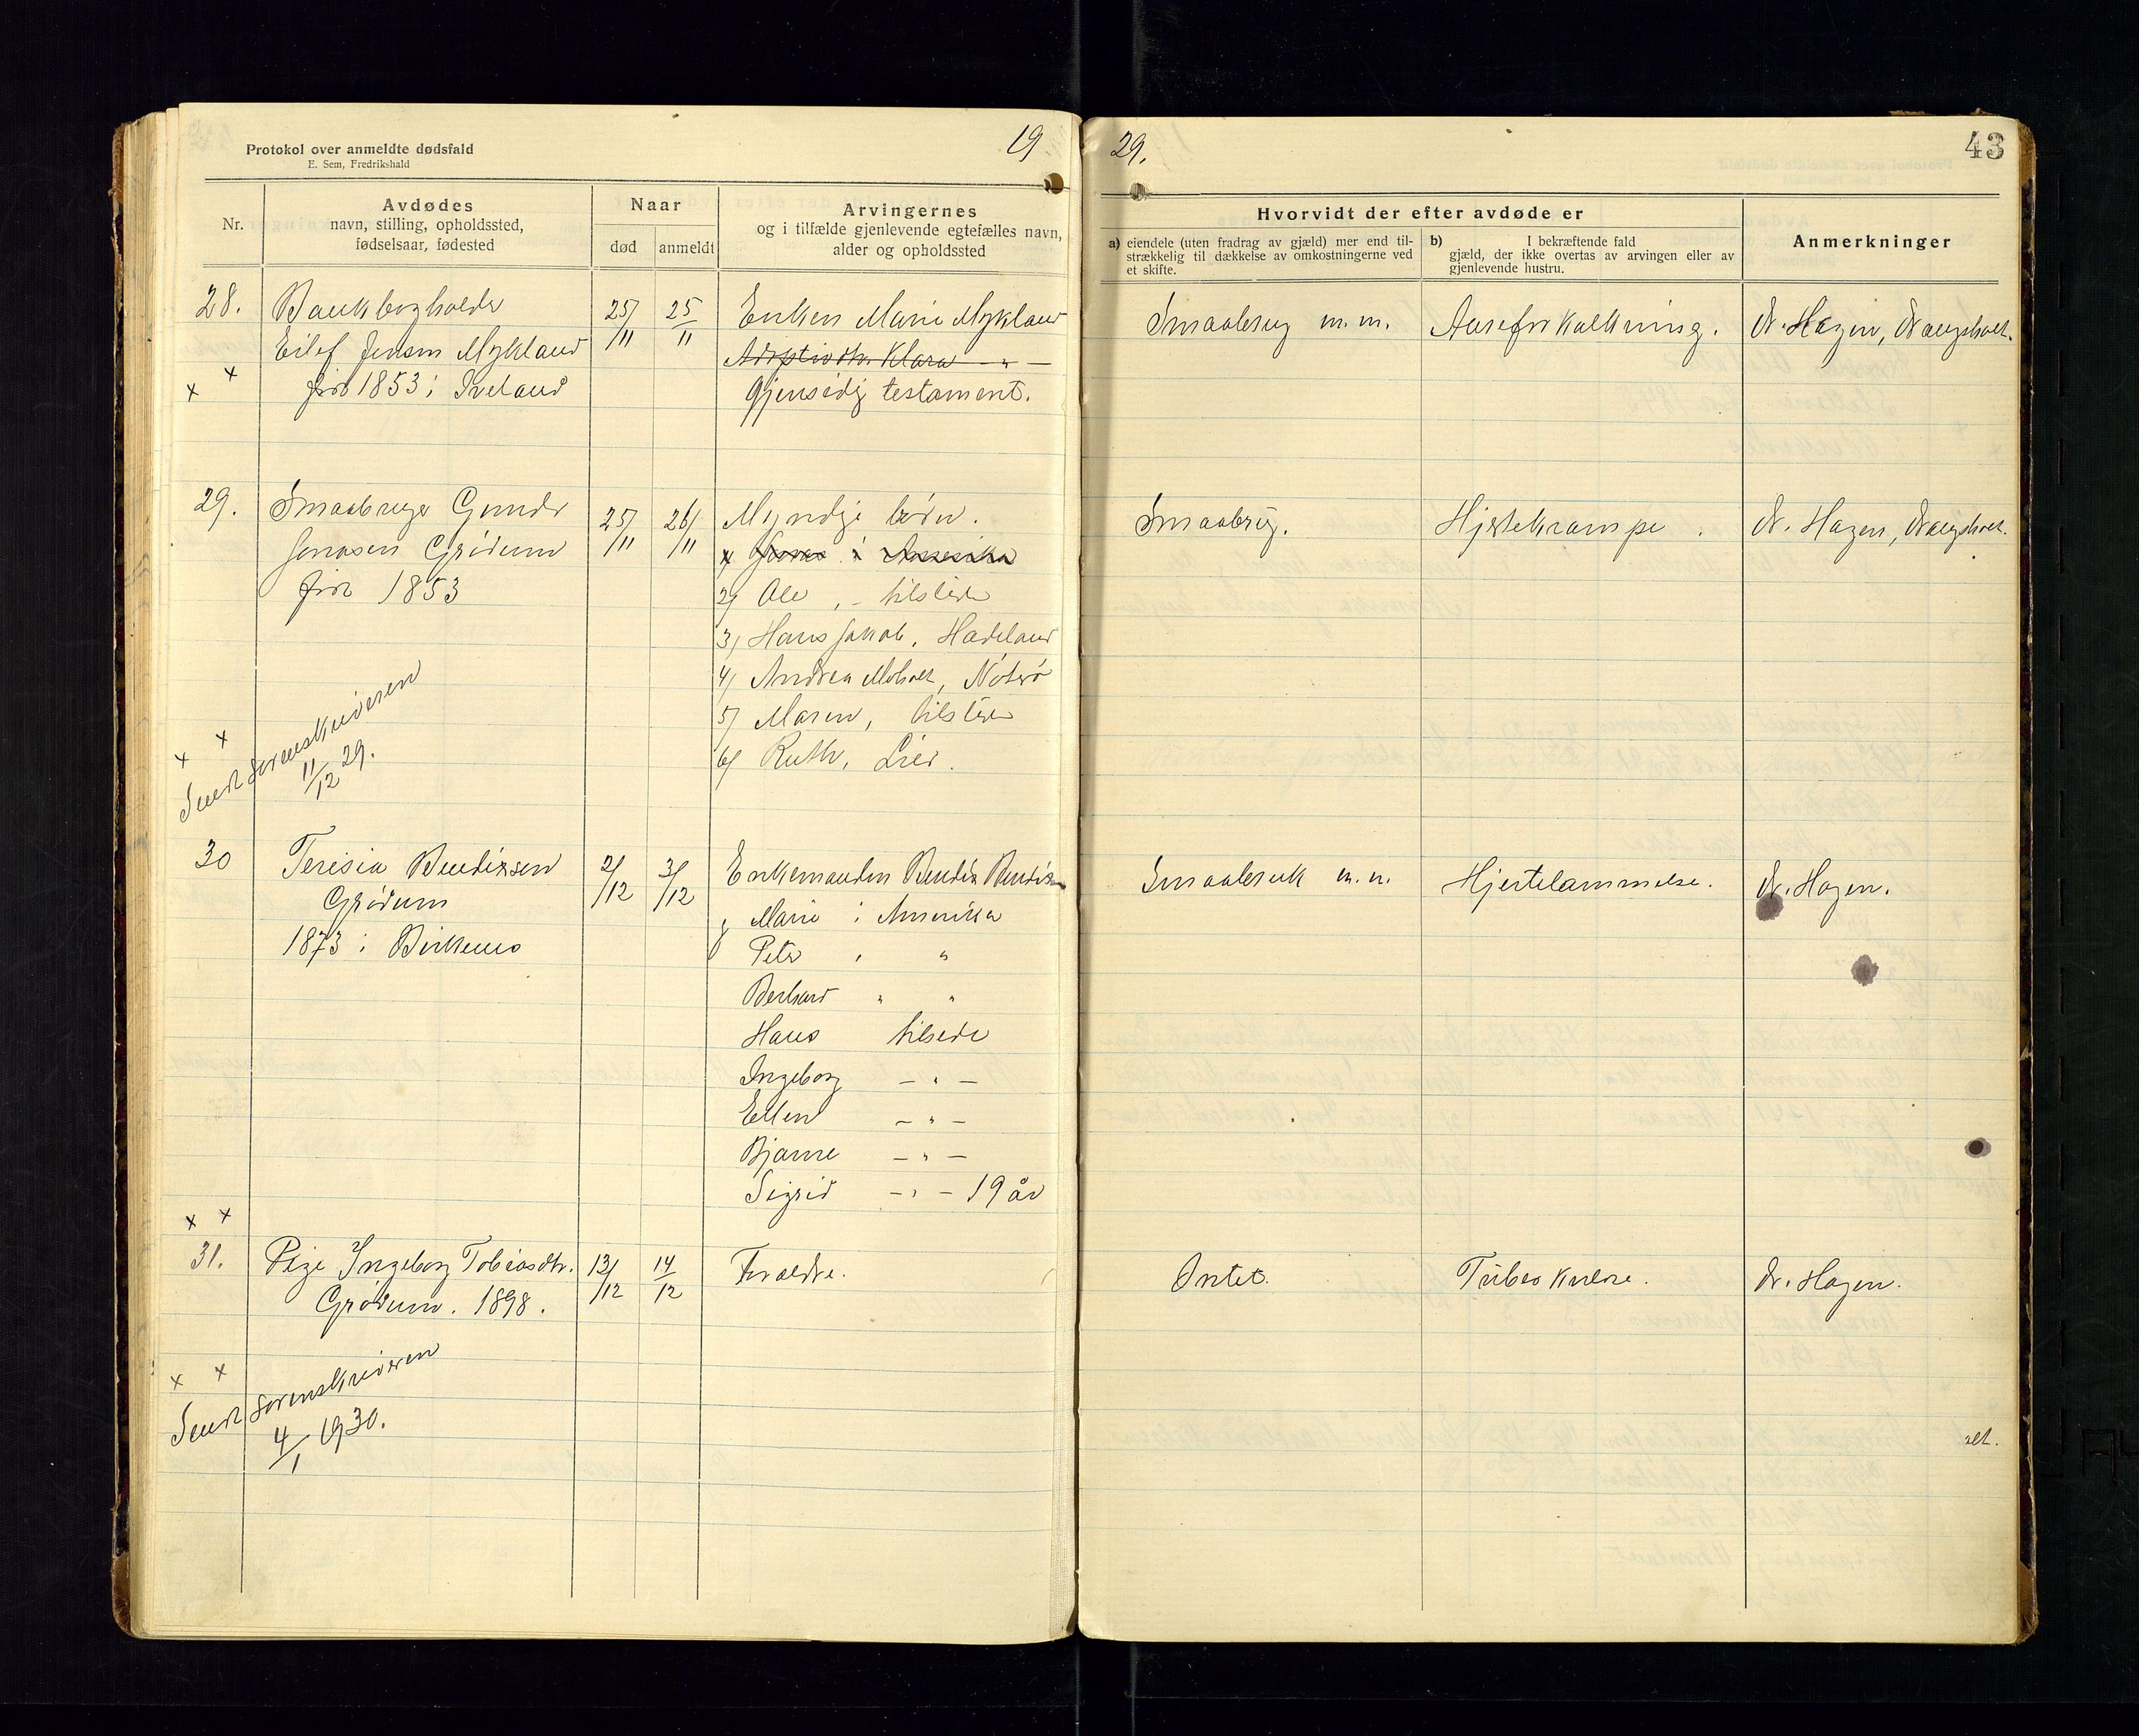 Protokol over anmeldte dødsfald
E. Sem, Fredrikshald
19
29.
43
Nr.
Avdødes
navn, stilling, opholdssted,
fødselsaar, fødested
Naar
død
anmeldt
Arvingernes
og i tilfælde gjenlevende egtefælles navn,
alder og opholdssted
Hvorvidt der efter avdøde er
a) eiendele (uten fradrag av gjæld) mer end til-
strækkelig til dækkelse av omkostningerne ved
et skifte.
b) I bekræftende fald
gjæld, der ikke overtas av arvingen eller av
gjenlevende hustru.
Anmerkninger
28.
Bankbogholder
Eilef Jensen Mykland
født 1853 i Iveland
x x
25/11
25/11
Enken Marie Mykland
Adoptivdtr. Klara - " -
Gjensidig testament.
Smaabrug m.m.
Aareforkalkning.
dr. Hagen,
29.
Smaabruger Gunder
Jonasen Grødum
født 1853
25/11
26/11
Myndige børn.
1) Jonas i Amerika
2) Ole, - tilstede
3) Hans Jakob, Hadeland
4) Andrea Moholt, Nøterø
5) Maren, tilstede
6) Ruth, Lier.
x x
Sendt sorenskriveren
11/12 29.
Smaabrug.
Hjertekrampe.
dr. Hagen,
30
Teresia Bendixsen
Grødum
1873 i Birkenes
2/12
3/12
Enkemanden Bendix Bendixsen
Marie i Amerika
Peter " "
Berhard " "
Hans tilstede
Ingeborg - " -
Ellen - " -
Bjarne - " -
Sigrid - " - 19 år
x x
Smaabruk m.m.
Hjertelammelse.
dr. Hagen.
31.
Pige Ingeborg Tobiasdtr.
Grødum. 1898.
13/12
14/12
Foreldre.
Intet.
Tuberkulose.
dr. Hagen.
x x
Sendt sorenskriveren
4/1 1930.